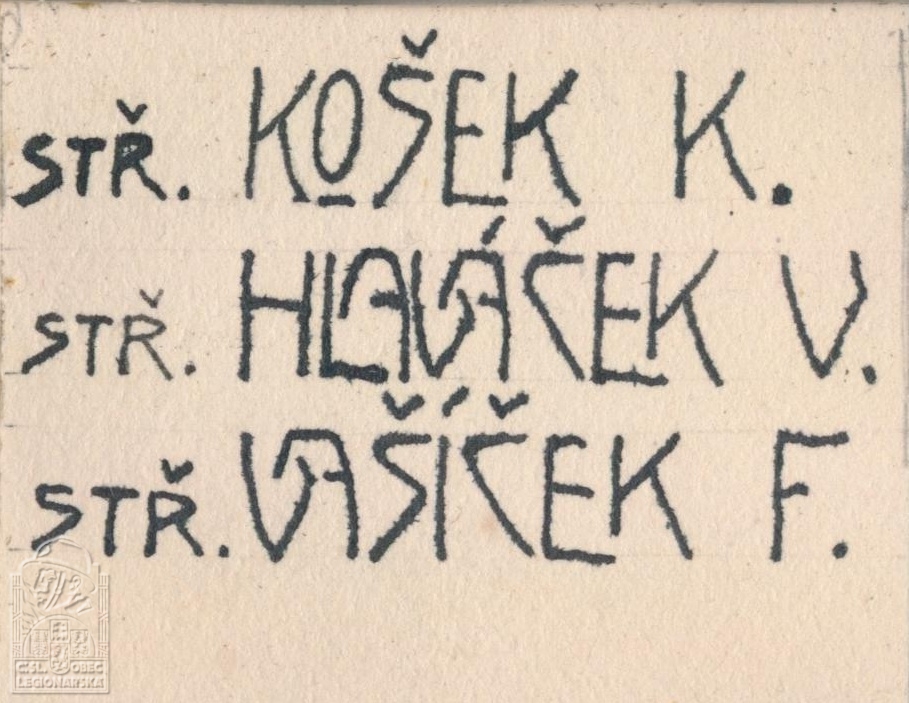 STŘ. KOŠEK K.
STŘ. HLAVÁČEK V.
STŘ. VAŠÍČEK F.
Č.SL. OBEC
LEGIONÁŘSKÁ